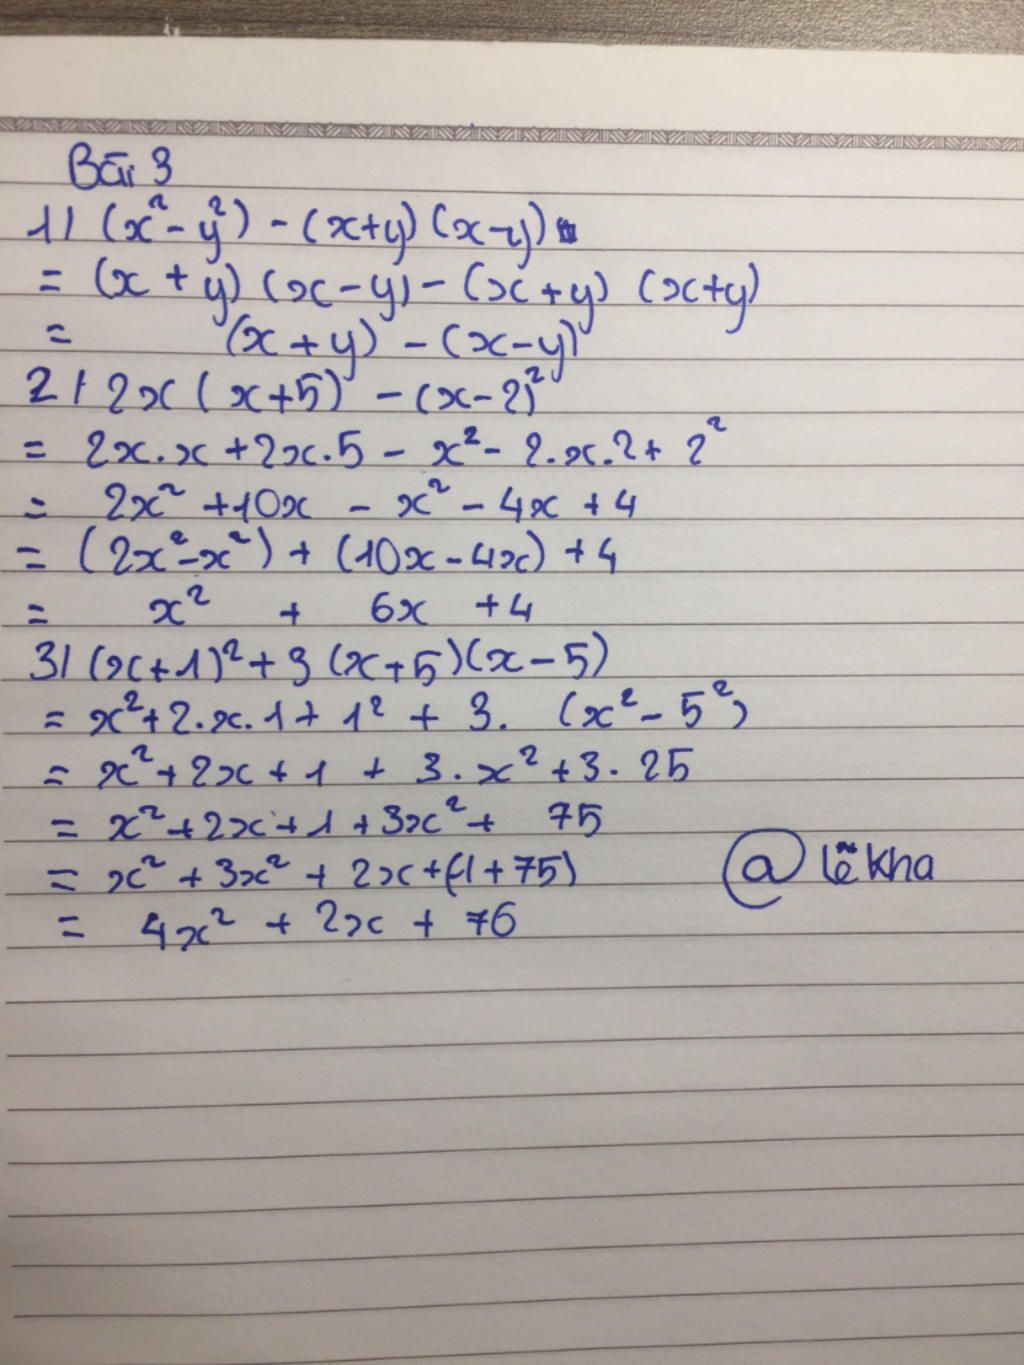 Bài 3
1) (x² - y²) - (x+y)(x-y)
= (x + y)(x - y) - (x + y)(x+y)
= (x + y) - (x - y)
2) 2x(x+5) - (x-2)²
= 2x.x + 2x.5 - x² - 2.x.2 + 2²
= 2x² + 10x - x² - 4x + 4
= (2x² - x²) + (10x - 4x) + 4
= x² + 6x + 4
3) (x+1)² + 3(x+5)(x-5)
= x² + 2.x.1 + 1² + 3. (x² - 5²)
= x² + 2x + 1 + 3.x² + 3.25
= x² + 2x + 1 + 3x² + 75
= x² + 3x² + 2x + (-1 + 75)
= 4x² + 2x + 76
@ lễ kha